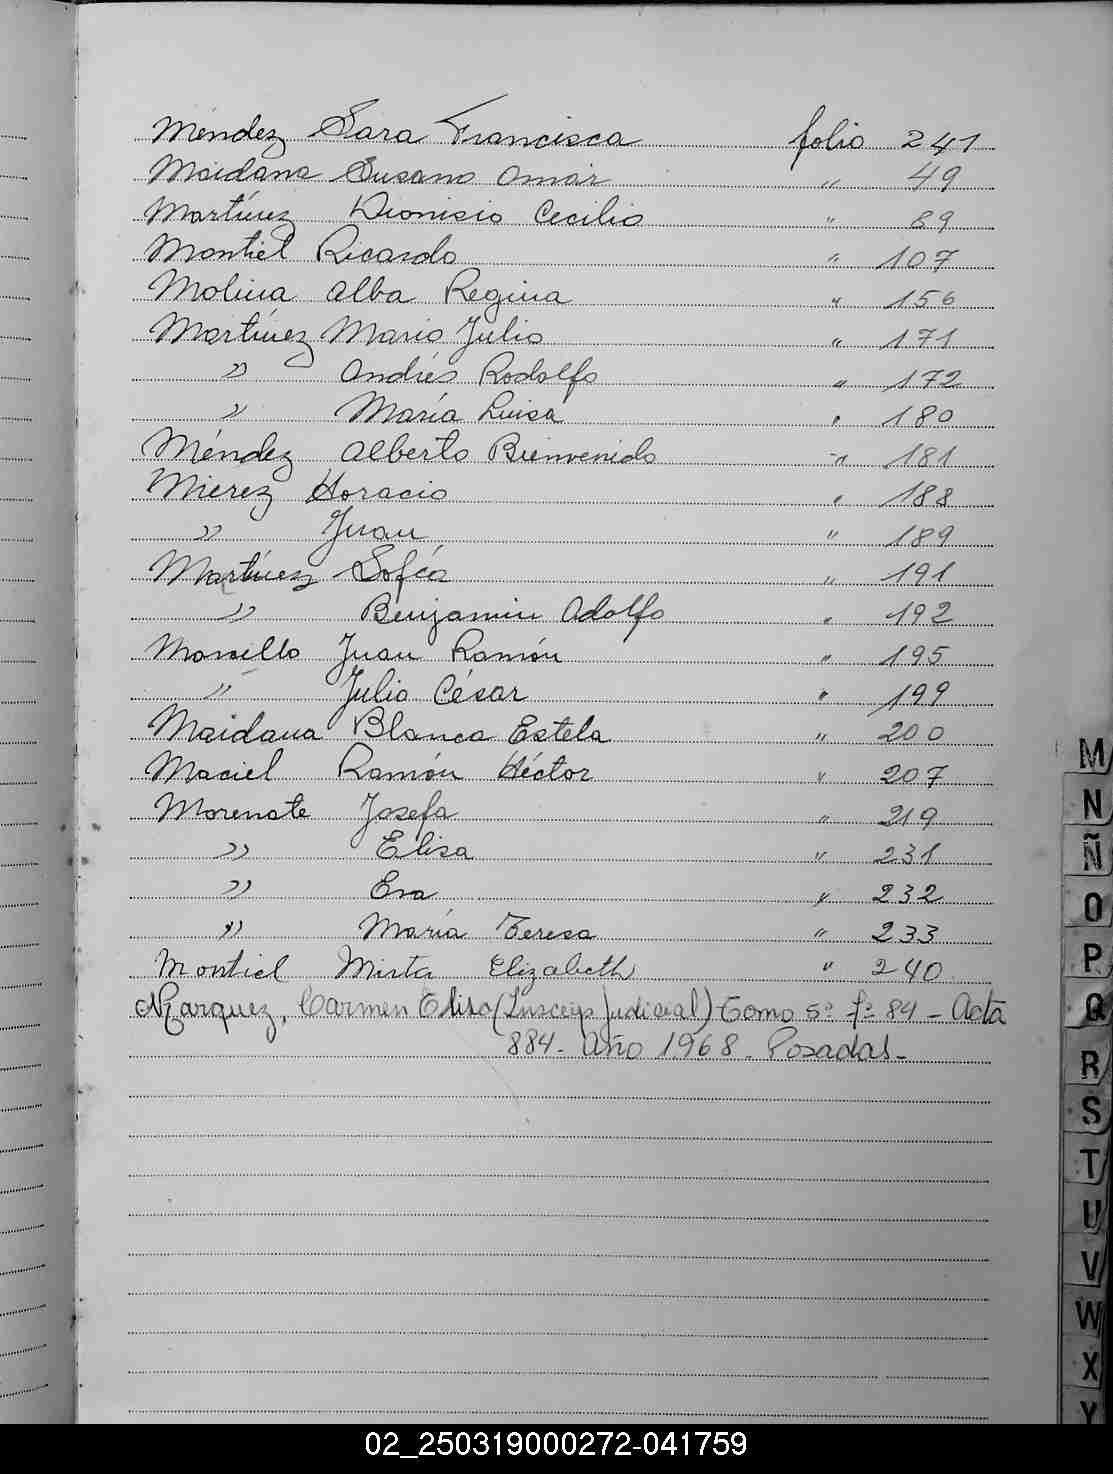 Méndez Sara Francisca folio 241
Maidana Susano Omar " 49
Martínez Dionisio Cecilio " 89
Montiel Ricardo " 107
Molina Alba Regina " 156
Martínez Mario Julio " 171
" Andrés Rodolfo " 172
" María Luisa " 180
Méndez Alberto Bienvenido " 181
Mierez Horacio " 188
" Juan " 189
Martínez Sofía " 191
" Benjamin Adolfo " 192
Juan Ramón " 195
" Julio César " 199
Maidana Blanca Estela " 200
Maciel Ramón Héctor " 207
Morenate Josefa " 219
" Elisa " 231
" Eva " 232
" María Teresa " 233
Montiel Mirta Elizabeth " 240
Marquez, Carmen Elisa (Inscrip Judicial) Tomo 5º fº 84 - Acta
884 - Año 1968. Posadas -
M
N
Ñ
O
P
Q
R
S
T
U
V
W
X
Y
02_250319000272-041759